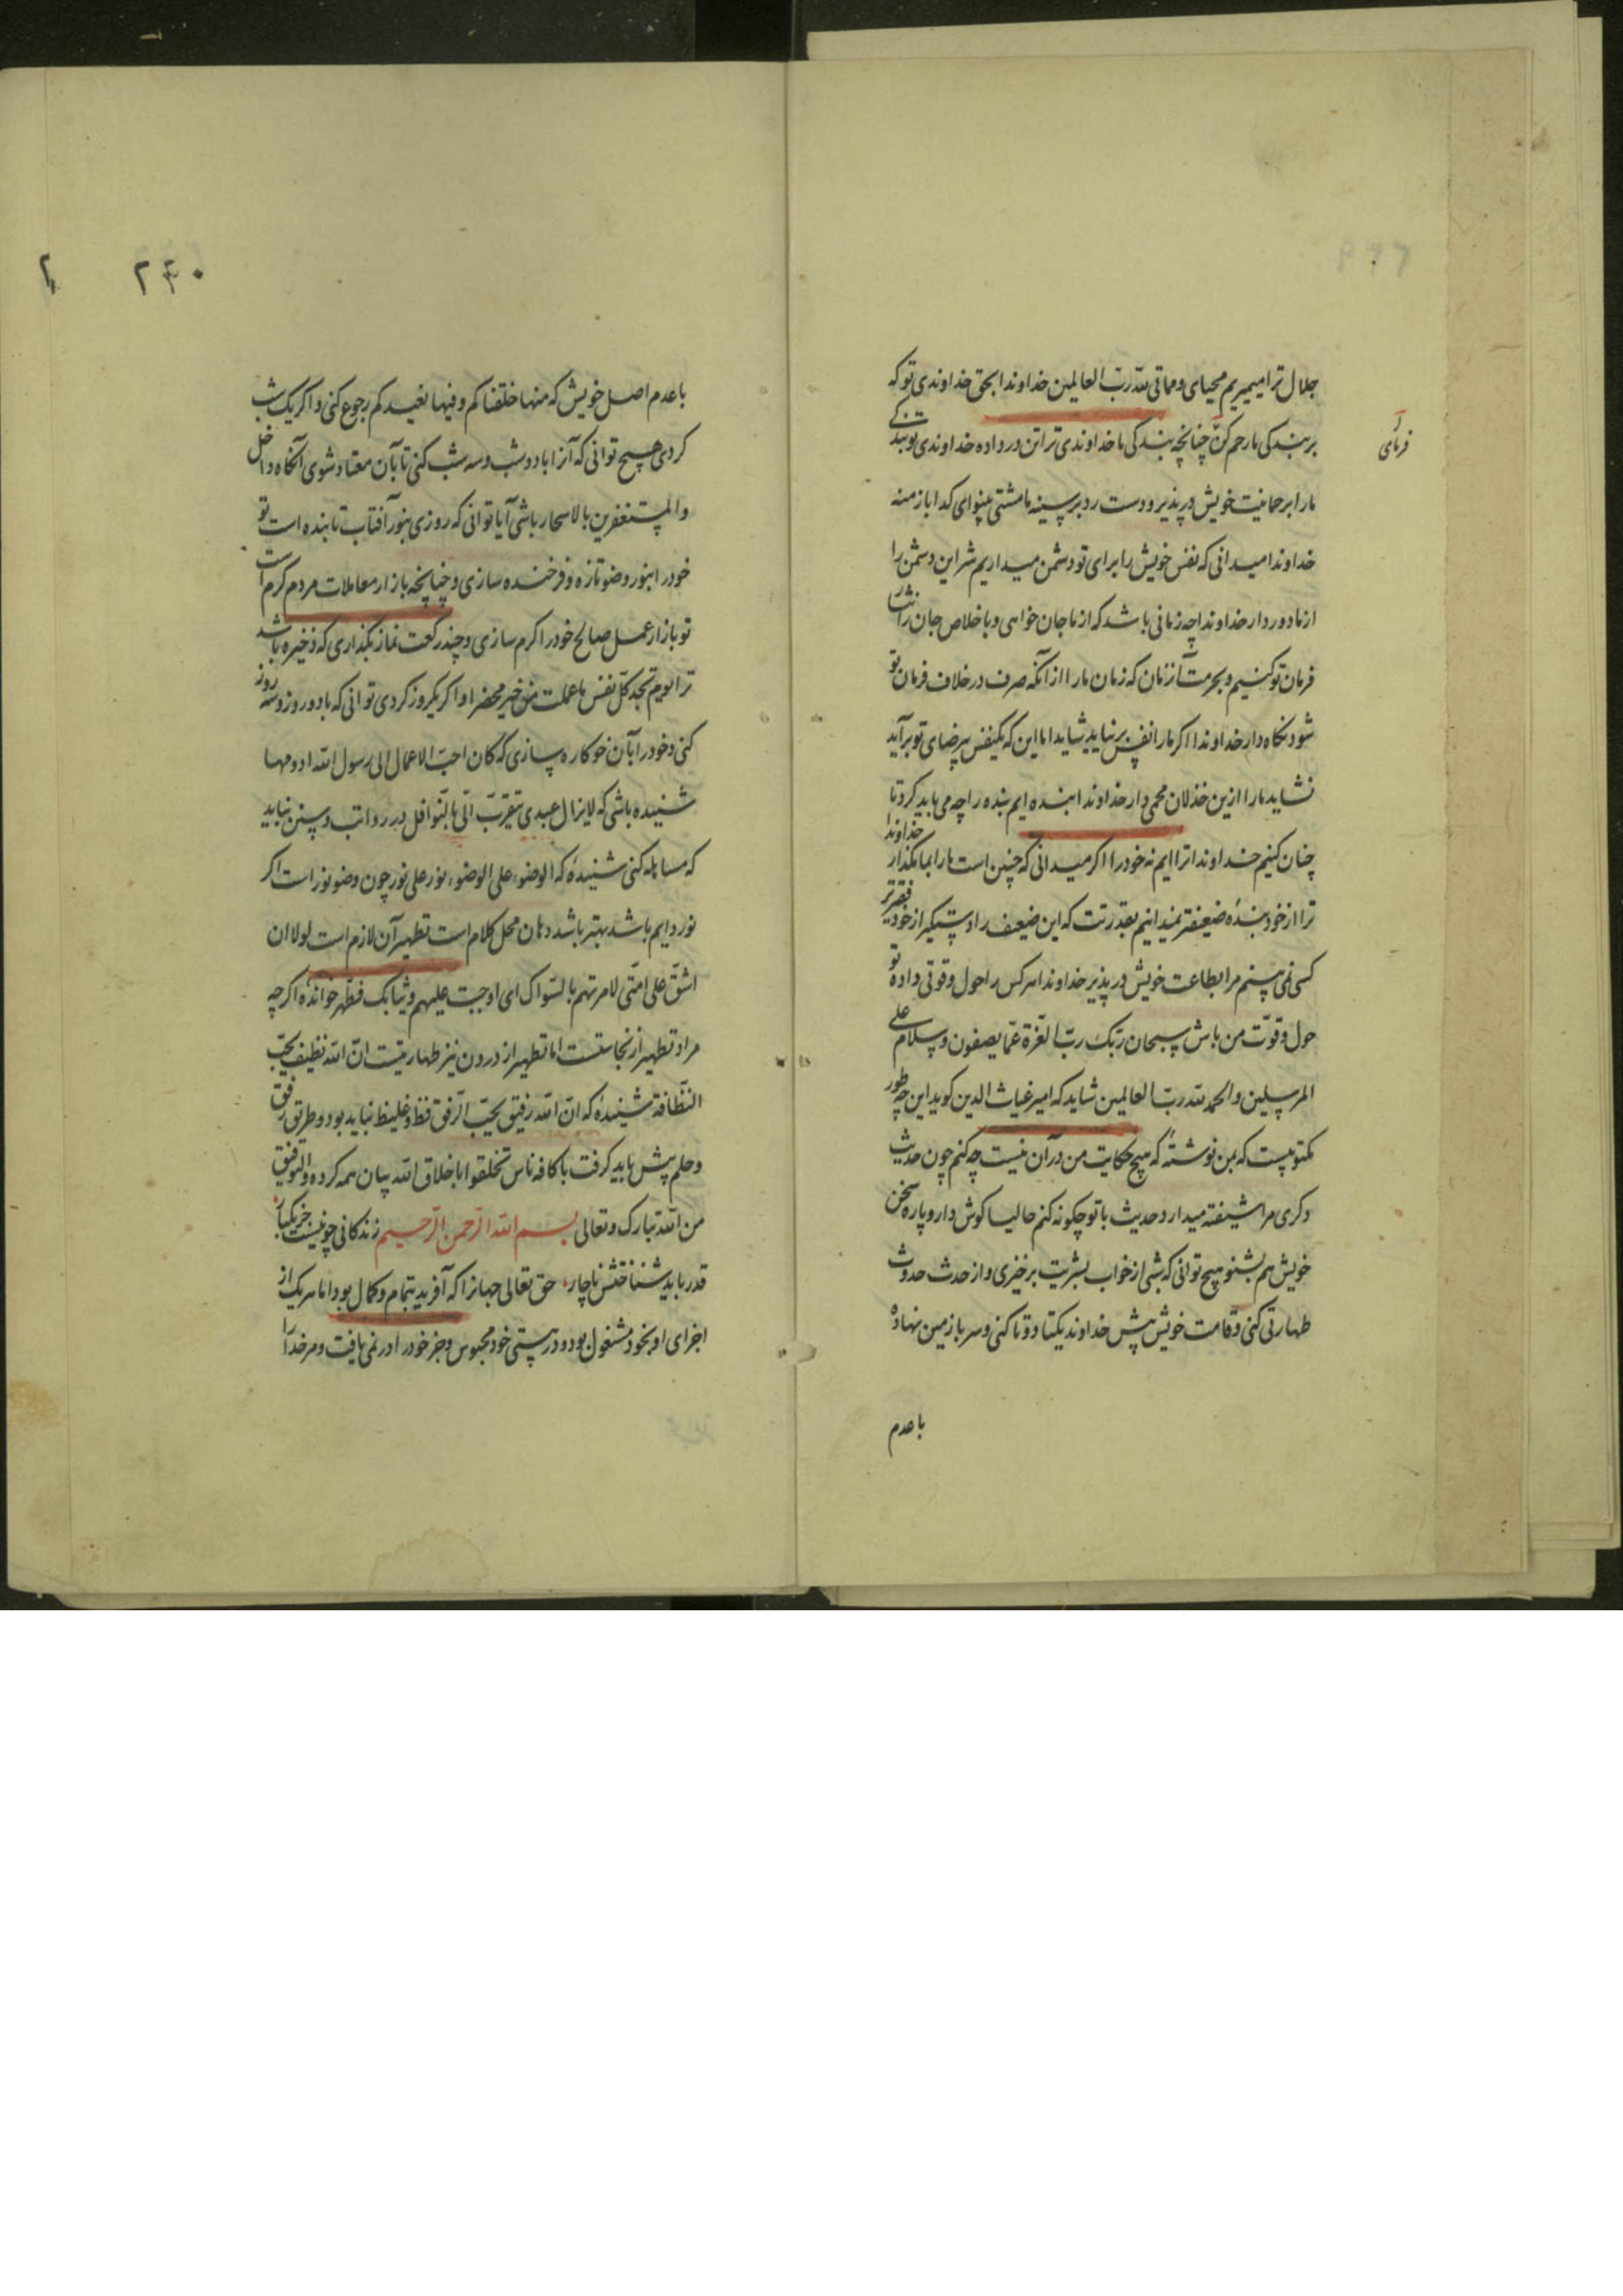 جلال ترا میمیریم محیای و مماتی لله رب العالمین خداوندا بحق خداوندی تو که
بر بندکی ما رحم کن چنانچه بندکی ما خداوندی ترا تن در داده خداوندی تو بندکی
فرمای
ما را برحمانیت خویش در پذیر و دست رد بر سینه ما مشتی بینوای کدا باز منه
خداوندا میدانی که نفس خویش را برای تو دشمن میداریم شر این دشمن را
از ما دور دار خداوندا چه زمانی باشد که از ما جان خواهی و با خلاص جان را
فرمان تو کنیم و بحرمت آن زمان که زمان ما را از آنکه صرف در خلاف فرمان تو
شود نکاه دار خداوندا اکر ما را نفس بر نیاید شاید اما این که یکنفس بی رضای تو برآید
نشاید ما را ازین خذلان محمی دار خداوندا بنده ایم بنده را چه می باید کرد تا
چنان کنیم خداوندا ترا ایم نه خود را اکر میدانی که چنین است ما را بما مکذار خداوندا
ترا از خود بندهٔ ضعیفتر نمیدانیم بقدرتت که این ضعیف را دستکیر از خود فقیرتر
کسی نمی بینم مرا بطاعت خویش در پذیر خداوندا هر کس را حول و قوتی داده تو
حول و قوّت من باش سبحان ربّک ربّ العزّة عمّا یصفون و سلام علی
المرسلین و الحمد لله ربّ العالمین شاید که امیر غیاث الدین کوید این چه طور
مکتوبیست که بمن نوشتهٔ که هیچ حکایت من در آن نیست چه کنم چون حدیث
دکری مرا شیفته میدارد حدیث با تو چکونه کنم حالیا کوش دار و پاره سخن
خویش هم بشنو هیچ توانی که شبی از خواب بشریت برخیزی و از حدث حدوث
طهارتی کنی و قامت خویش پیش خداوند یکتا دو تا کنی و سر بر زمین نهاده
با عدم
۲۴۰
با عدم اصل خویش که منها خلقناکم و فیها نعیدکم رجوع کنی و اکر یک شب
کردی هیچ توانی که آنرا با دو شب و سه شب کنی تا بآن معتاد شوی آنکاه داخل
و المستغفرین بالاسحار باشی آیا توانی که روزی بنور آفتاب تابنده است تو
خود را بنور وضو تازه و فرخنده سازی و چنانچه بازار معاملات مردم کرم است
تو بازار عمل صالح خود را کرم سازی و چند رکعت نماز بکذاری که ذخیره باشد
ترا یوم تجد کلّ نفس ما عملت من خیر محضرا و اکر یکروز کردی توانی که با دو روز و سه روز
کنی و خود را بآن خو کاره سازی که کان احبّ الاعمال الی رسول الله ادومها
شنیده باشی که لایزال عبدی یتقرّب الیّ بالنّوافل در رواتب و سنن نباید
که مساهله کنی شنیدهٔ که الوضوء علی الوضوء نور علی نور چون وضو نور است اکر
نور دایم باشد بهتر باشد دهان محل کلام است تطهیر آن لازم است لولا ان
اشقّ علی امّتی لامرتهم بالسّواک ای اوجبت علیهم و ثیابک فطهّر خواندهٔ اکرچه
مراد تطهیر از نجاستست اما تطهیر از درون نیز طهارتیست انّ الله نظیف یحبّ
النّظافة شنیدهٔ که انّ الله رفیق یحبّ الرّفق فظ و غلیظ نباید بود و طریق رفق
و حلم پیش باید کرفت با کافه ناس تخلقوا باخلاق الله بیان همه کرده و التوفیق
من الله تبارک و تعالی بسم الله الرّحمن الرّحیم زندکانی چو نیست جز یکبار
قدر باید شناختش ناچار حق تعالی جهانرا که آفرید بتمام و کمال بود اما هر یک از
اجزای او بخود مشغول بود و در هستی خود محبوس و جز خود را در نمی یافت و مر خدا را